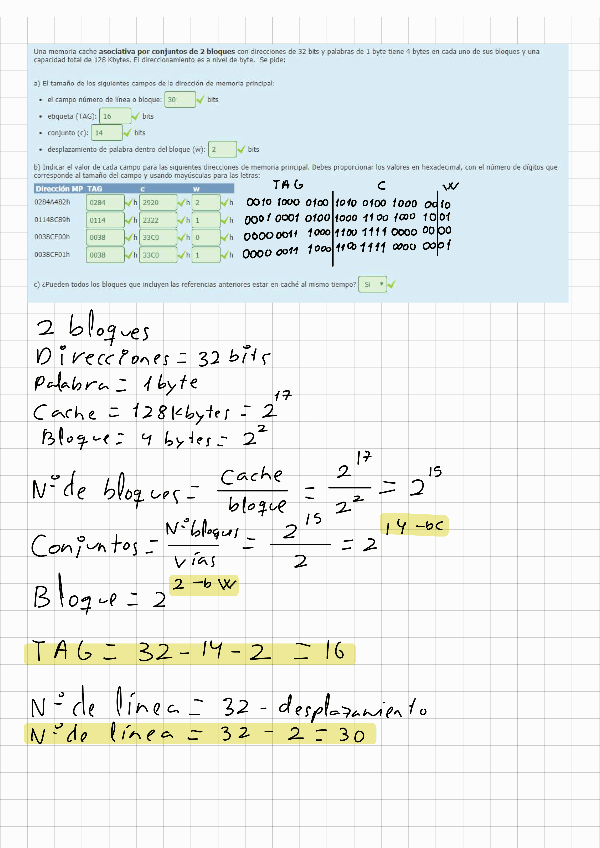 Una memoria cache asociativa por conjuntos de 2 bloques con direcciones de 32 bits y palabras de 1 byte tiene 4 bytes en cada uno de sus bloques y una
capacidad total de 128 Kbytes. El direccionamiento es a nivel de byte. Se pide:
a) El tamaño de los siguientes campos de la dirección de memoria principal:
• el campo número de línea o bloque: 30 bits
• etiqueta (TAG): 16 bits
• conjunto (c): 14 bits
• desplazamiento de palabra dentro del bloque (w): 2 bits
b) Indicar el valor de cada campo para las siguientes direcciones de memoria principal. Debes proporcionar los valores en hexadecimal, con el número de dígitos que
corresponde al tamaño del campo y usando mayúsculas para las letras:
TAG C W
Dirección MP TAG c w
0284A482h 0284 h 2920 h 2 h 0010 1000 0100 1010 0100 1000 0010
01148C89h 0114 h 2322 h 1 h 0001 0001 0100 1000 1100 1000 1001
0038CF00h 0038 h 33C0 h 0 h 0000 0011 1000 1100 1111 0000 0000
0038CF01h 0038 h 33C0 h 1 h 0000 0011 1000 1100 1111 0000 0001
c) ¿Pueden todos los bloques que incluyen las referencias anteriores estar en caché al mismo tiempo? Si
2 bloques
Direcciones = 32 bits
Palabra = 1 byte
Cache = 128Kbytes = 2^17
Bloque = 4 bytes = 2^2
Nº de bloques = Cache / bloque = 2^17 / 2^2 = 2^15
Conjuntos = Nº bloques / Vías = 2^15 / 2 = 2^14 → C
Bloque = 2^2 → W
TAG = 32 - 14 - 2 = 16
Nº de línea = 32 - desplazamiento
Nº de línea = 32 - 2 = 30